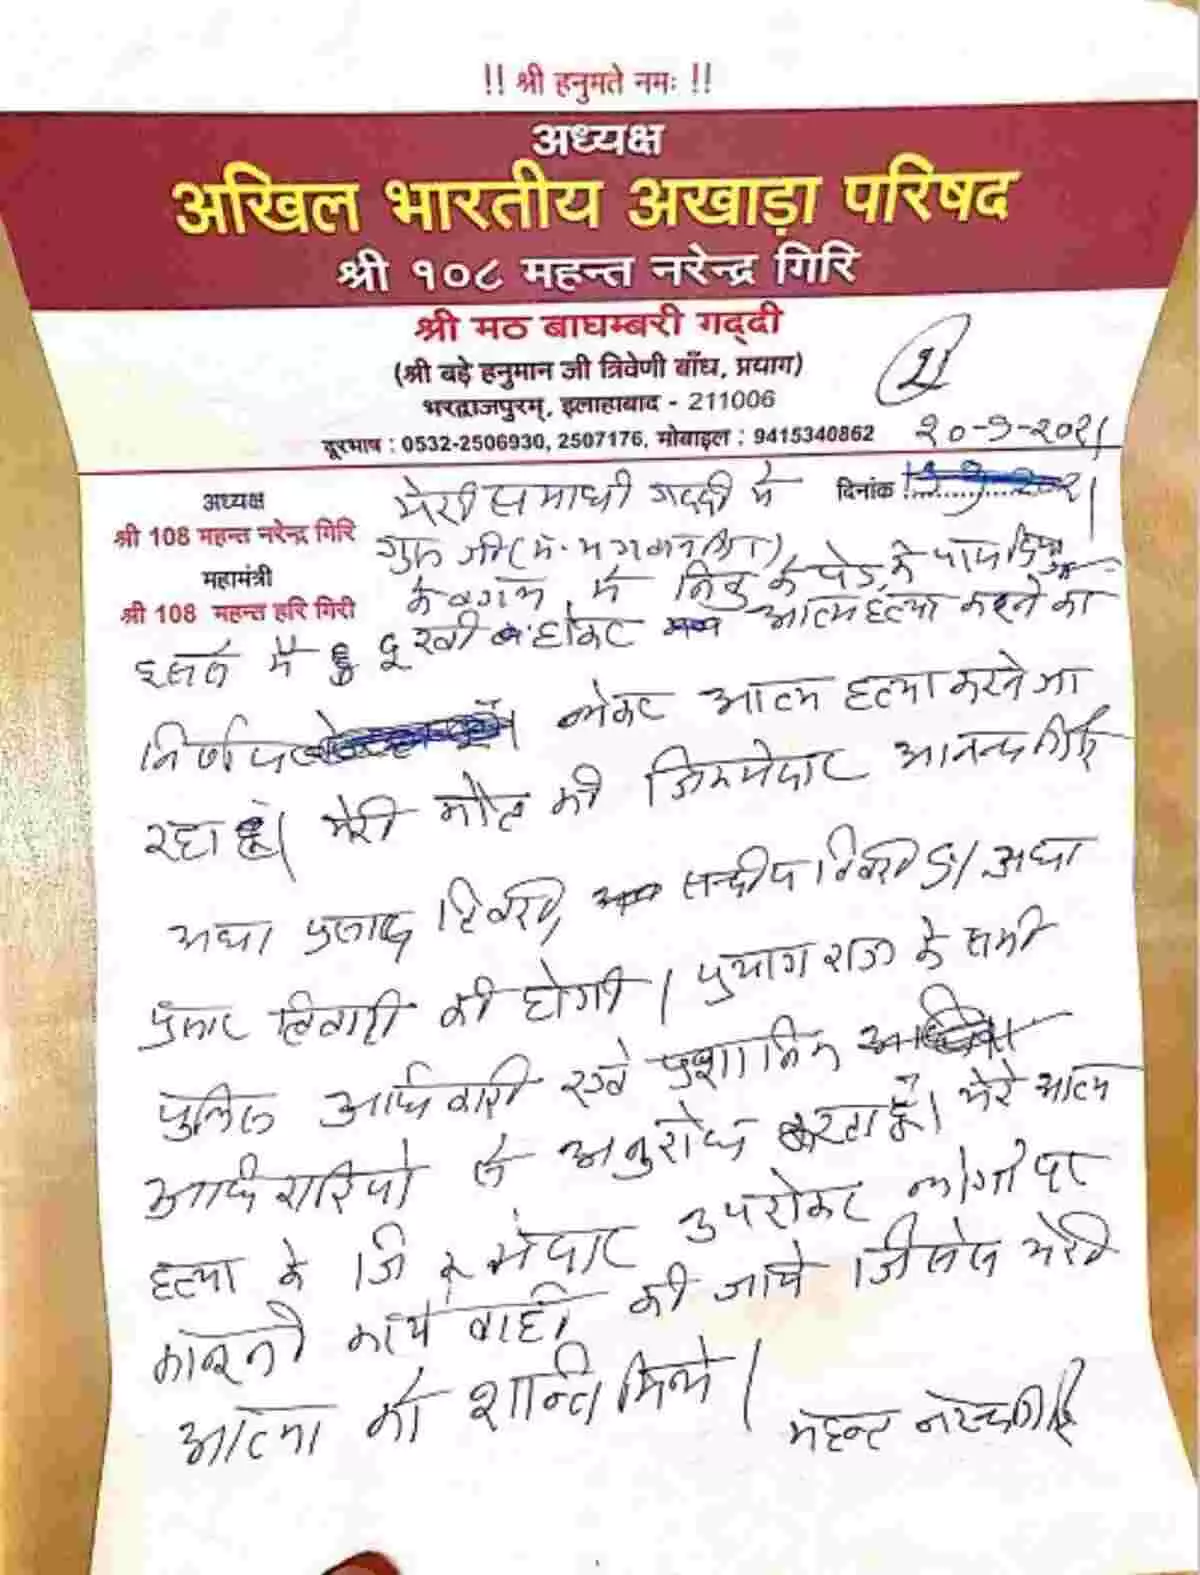 !! श्री हनुमते नमः !!
अध्यक्ष
अखिल भारतीय अखाड़ा परिषद
श्री १०८ महन्त नरेन्द्र गिरि
श्री मठ बाघम्बरी गद्दी
(श्री बड़े हनुमान जी त्रिवेणी बाँध, प्रयाग)
भरद्वाजपुरम्, इलाहाबाद - 211006
दूरभाष : 0532-2506930, 2507176, मोबाइल : 9415340862
२०-9-२०२१
दिनांक
अध्यक्ष
श्री 108 महन्त नरेन्द्र गिरि
महामंत्री
श्री 108 महन्त हरि गिरी
मेरी समाधी गद्दी मे
गुरू जी
के बगल में निबु के पेड़ के पास
मै दुखी होकर आत्महत्या करने का
निर्णय लेकर आत्म हत्या करने जा
रहा हूँ। मेरी मौत की जिम्मेदार आनन्द गिरि
अधा प्रसाद तिवारी सन्दीप तिवारी S/ अधा
प्रसाद तिवारी की होगी। प्रयाग राज के सभी
पुलिस अधिकारी एवं प्रशासनिक
अधिकारियो से अनुरोध करता हूँ। मेरे आत्म
हत्या के जिम्मेदार उपरोक्त लोगो पर
कानूनी कार्य वाही की जाये जिससे मेरी
आत्मा को शान्ति मिले।
महन्त नरेन्द्र गिरि